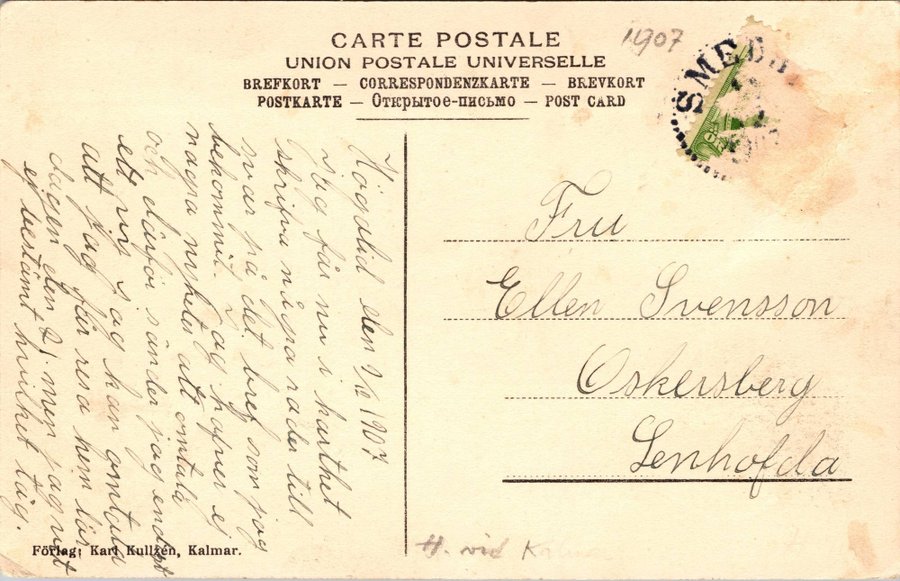 1907
CARTE POSTALE
UNION POSTALE UNIVERSELLE
BREFKORT — CORRESPONDENZKARTE — BREVKORT
POSTKARTE — Открытое-письмо — POST CARD
SMED
Högslid den 1907
Jag får nu i korthet
skrifva några rader till
svar på det bref som jag
bekommit. Jag hafver ej
några nyheter att omtala
och därför sänder jag endast
ett vis Jag kan omtala
att jag får resa hem lör
dagen den 21. men jag vet
ej bestämt hvilket tåg.
Fru
Ellen Svensson
Oskersberg
Lenhofda
Förlag: Karl Kullzén, Kalmar.
H. vid